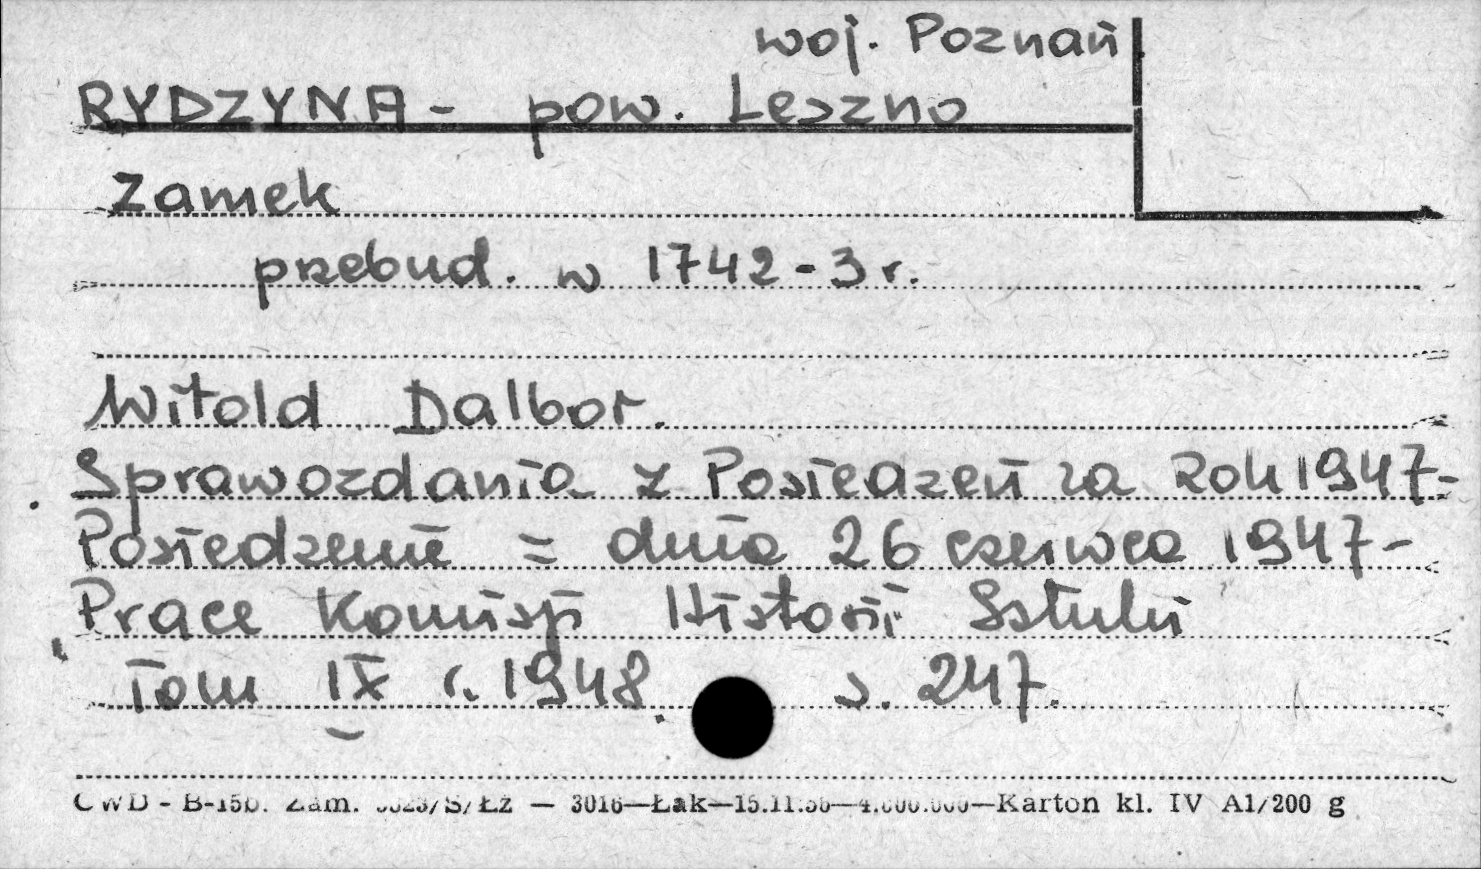 woj. Poznań
RYDZYNA - pow. Leszno
Zamek
przebud. w 1742-3 r.
Witold Dalbor.
Sprawozdania z Posiedzeń za Rok 1947-
Posiedzenie = dnia 26 czerwca 1947-
Prace Komisji Historii Sztuki
Tom IX r. 1948. s. 247.
CWD - B-15b. Zam. /S/Łż — 3016—Łak—15.11.56—4.000.000—Karton kl. IV A1/200 g